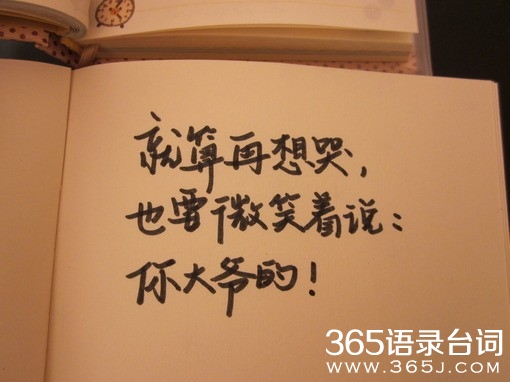 就算再想哭，
也要微笑着说：
你大爷的！
365语录台词
www.365j.com